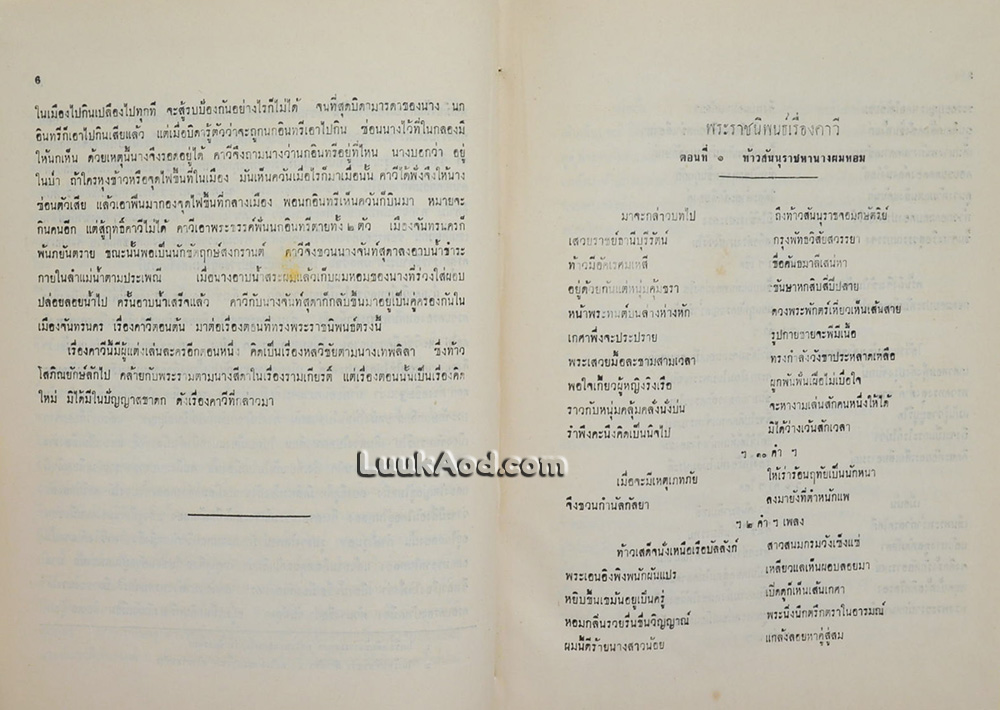 6
ในเมืองไปกินเปลืองไปทุกที จะสู้รบป้องกันอย่างไรก็ไม่ได้ จนที่สุดบิดามารดาของนาง นก
อินทรีก็เอาไปกินเสียแล้ว แต่เมื่อบิดารู้ตัวว่าจะถูกนกอินทรีเอาไปกิน ซ่อนนางไว้ที่ในกลองมิ
ให้นกเห็น ด้วยเหตุนั้นนางจึงรอดอยู่ได้ คาวีจึงถามนางว่านกอินทรีอยู่ที่ไหน นางบอกว่า อยู่
ในป่า ถ้าใครหุงข้าวหรือจุดไฟขึ้นที่ในเมือง มันเห็นควันเมื่อไรก็มาเมื่อนั้น คาวีได้ฟังจึงให้นาง
ซ่อนตัวเสีย แล้วเอาฟืนมากองจุดไฟขึ้นที่กลางเมือง พอนกอินทรีเห็นควันก็บินมา หมายจะ
กินคนอีก แต่สู้ฤทธิ์คาวีไม่ได้ คาวีเอาพระขรรค์ฟันนกอินทรีตายทั้ง ๒ ตัว เมืองจันทรนครก็
พ้นภยันตราย ขณะนั้นพอเป็นนักขัตฤกษ์สงกรานต์ คาวีจึงชวนนางจันท์สุดาลงอาบน้ำชำระ
กายในลำแม่น้ำตามประเพณี เมื่อนางอาบน้ำสระผมแล้วเก็บผมหอมของนางที่ร่วงใส่ผอบ
ปล่อยลอยน้ำไป ครั้นอาบน้ำเสร็จแล้ว คาวีกับนางจันท์สุดาก็กลับขึ้นมาอยู่เป็นคู่ครองกันใน
เมืองจันทรนคร เรื่องคาวีตอนต้น มาต่อเรื่องตอนที่ทรงพระราชนิพนธ์ตรงนี้
เรื่องคาวีนี้มีผู้แต่งเล่นละครอีกตอนหนึ่ง คิดเป็นเรื่องหลวิชัยตามนางเทพลิลา ซึ่งท้าว
โสภิณยักษ์ลักไป คล้ายกับพระรามตามนางสีดาในเรื่องรามเกียรติ์ แต่เรื่องตอนนั้นเป็นเรื่องคิด
ใหม่ มิได้มีในปัญญาสชาดก ดังเรื่องคาวีที่กล่าวมา
พระราชนิพนธ์เรื่องคาวี
ตอนที่ ๑ ท้าวสันนุราชหานางผมหอม
มาจะกล่าวบทไป ถึงท้าวสันนุราชจอมกษัตริย์
เสวยราชย์ธานีบุรีรัตน์ กรุงพัทธวิสัยสวรรยา
ท้าวมีอัคเรศมเหสี ชื่อคันธมาลีเสน่หา
อยู่ด้วยกันแต่หนุ่มคุ้มชรา ชันษาหกสิบสี่ปีปลาย
หน้าพระทนต์บนล่างห่างหัก ดวงพระพักตร์เหี่ยวเห็นเส้นสาย
เกศาพึ่งจะประปราย รูปกายชายจะพีมีเนื้อ
พระเสวยมื้อละชามสามเวลา ทรงกำลังวังชาประหลาดเหลือ
พอใจเกี้ยวผู้หญิงริงเรือ ผูกพันฟั่นเฝือไม่เบื่อใจ
ราวกับหนุ่มคลุ้มคลั่งนั่งบ่น จะหางามเล่นสักคนหนึ่งให้ได้
รำพึงคะนึงคิดเป็นนิจไป มิได้ว่างเว้นสักเวลา
ฯ ๑๐ คำ ฯ
เมื่อจะมีเหตุเภทภัย ให้เร่าร้อนฤทัยเป็นนักหนา
จึงชวนกำนัลกัลยา ลงมายังที่ตำหนักแพ
ฯ ๒ คำ ฯ เพลง
ท้าวเสด็จนั่งเหนือเรือบัลลังก์ สาวสนมกรมวังเซ็งแซ่
พระเอนอิงพิงพนักผันแปร เหลียวแลเห็นผอบลอยมา
หยิบขึ้นเขม้นอยู่เป็นครู่ เปิดดูก็เห็นเส้นเกศา
หอมกลิ่นรวยรื่นชื่นวิญญาณ์ พระนิ่งนึกตรึกตราในอารมณ์
ผมนี้ดีร้ายนางสาวน้อย แกล้งลอยหาคู่สู่สม
LuukAod.com